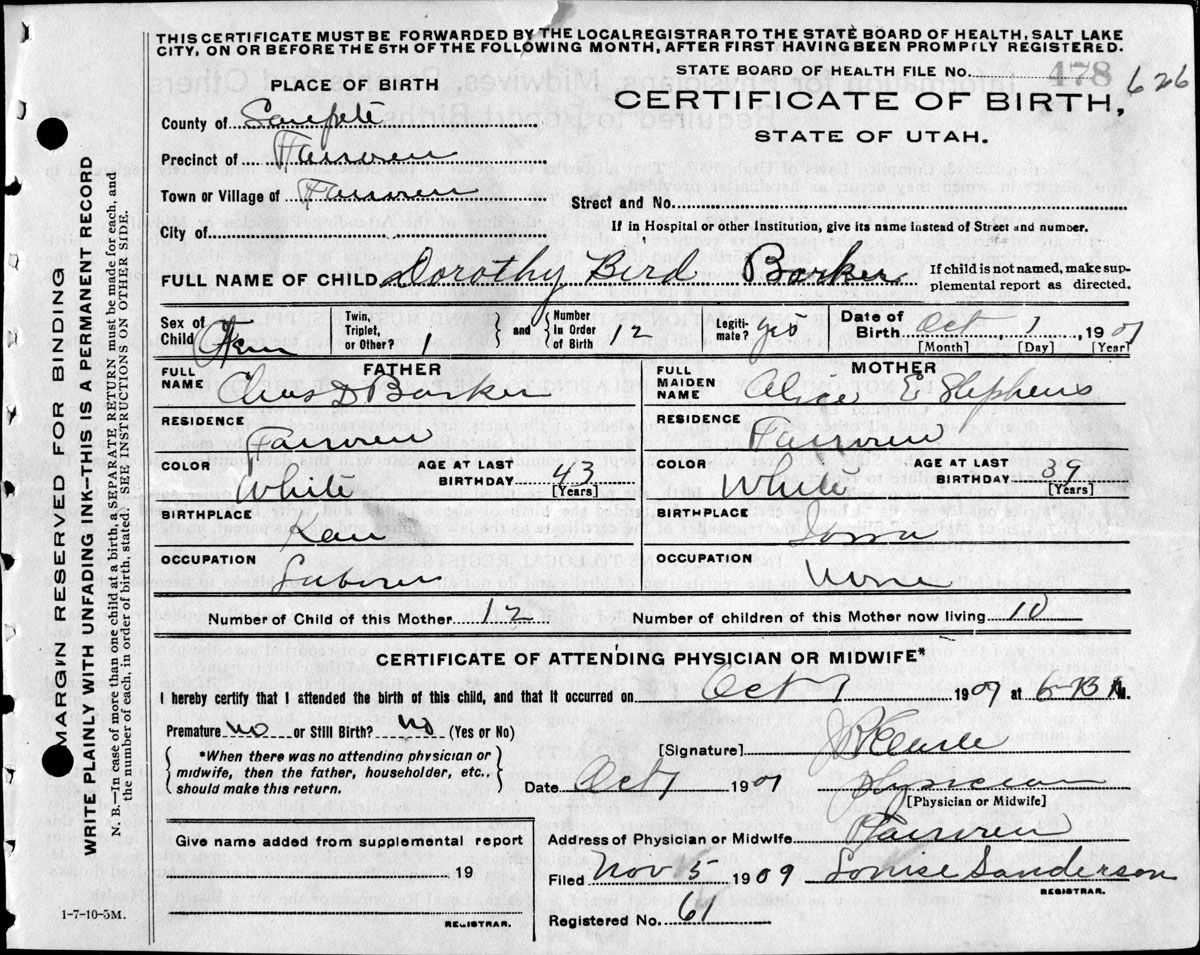 THIS CERTIFICATE MUST BE FORWARDED BY THE LOCAL REGISTRAR TO THE STATE BOARD OF HEALTH, SALT LAKE
CITY, ON OR BEFORE THE 5TH OF THE FOLLOWING MONTH, AFTER FIRST HAVING BEEN PROMPTLY REGISTERED.
STATE BOARD OF HEALTH FILE No. 478 626
PLACE OF BIRTH
CERTIFICATE OF BIRTH,
STATE OF UTAH.
County of Sanpete
Precinct of
Town or Village of
Street and No.
City of
If in Hospital or other Institution, give its name instead of Street and number.
FULL NAME OF CHILD Dorothy Bird Barker
If child is not named, make supplemental report as directed.
Sex of Child Fem
Twin, Triplet, or Other? 1
and Number in Order of Birth 12
Legitimate? yes
Date of Birth Oct 1, 190
[Month] [Day] [Year]
FATHER
FULL NAME Chas D Barker
RESIDENCE
COLOR White
AGE AT LAST BIRTHDAY 43
[Years]
BIRTHPLACE
OCCUPATION Laborer
MOTHER
FULL MAIDEN NAME Alice E Stephens
RESIDENCE
COLOR White
AGE AT LAST BIRTHDAY 39
[Years]
BIRTHPLACE Iowa
OCCUPATION None
Number of Child of this Mother 12
Number of children of this Mother now living 10
CERTIFICATE OF ATTENDING PHYSICIAN OR MIDWIFE*
I hereby certify that I attended the birth of this child, and that it occurred on Oct 190 at M.
Premature No or Still Birth? No (Yes or No)
*When there was no attending physician or
midwife, then the father, householder, etc.,
should make this return.
[Signature]
Date Oct 190 Physician
[Physician or Midwife]
Give name added from supplemental report
19
REGISTRAR.
Address of Physician or Midwife
Filed Nov 5 1909 Louise Sanderson
REGISTRAR.
Registered No. 61
1-7-10-5M.
MARGIN RESERVED FOR BINDING
WRITE PLAINLY WITH UNFADING INK—THIS IS A PERMANENT RECORD
N. B.—In case of more than one child at a birth, a SEPARATE RETURN must be made for each, and
the number of each, in order of birth, stated. SEE INSTRUCTIONS ON OTHER SIDE.